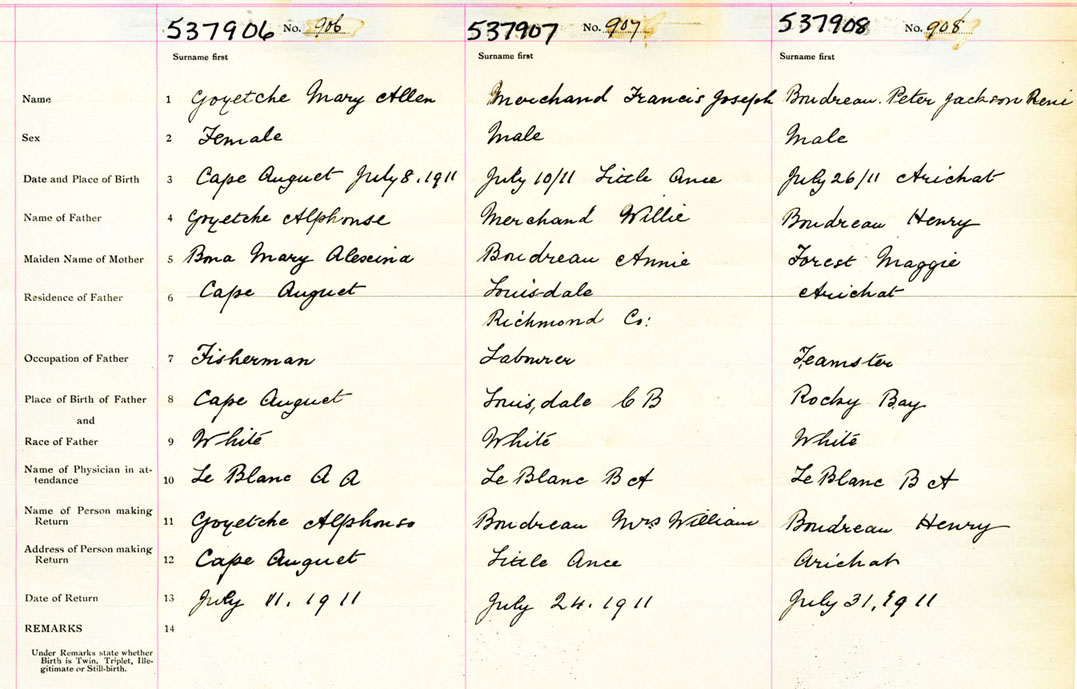 537906 No. 906 537907 No. 907 537908 No. 908
Surname first Surname first Surname first
Name 1 Goyetche Mary Allen Merchand Francis Joseph Boudreau. Peter Jackson Reni
Sex 2 Female Male Male
Date and Place of Birth 3 Cape Auguet July 8. 1911 July 10/11 Little Ance July 26/11 Arichat
Name of Father 4 Goyetche Alphonse Merchand Willie Boudreau Henry
Maiden Name of Mother 5 Bona Mary Alexcina Boudreau Annie Forest Maggie
Residence of Father 6 Cape Auguet Louisdale Arichat
Richmond Co:
Occupation of Father 7 Fisherman Labourer Teamster
Place of Birth of Father 8 Cape Auguet Louis,dale C B Rocky Bay
and
Race of Father 9 White White White
Name of Physician in at-
tendance 10 Le Blanc A A Le Blanc B A Le Blanc B A
Name of Person making
Return 11 Goyetche Alphonso Boudreau Mrs William Boudreau Henry
Address of Person making
Return 12 Cape Auguet Little Ance Arichat
Date of Return 13 July 11. 1911 July 24. 1911 July 31, 1911
REMARKS 14
Under Remarks state whether
Birth is Twin, Triplet, Ille-
gitimate or Still-birth.